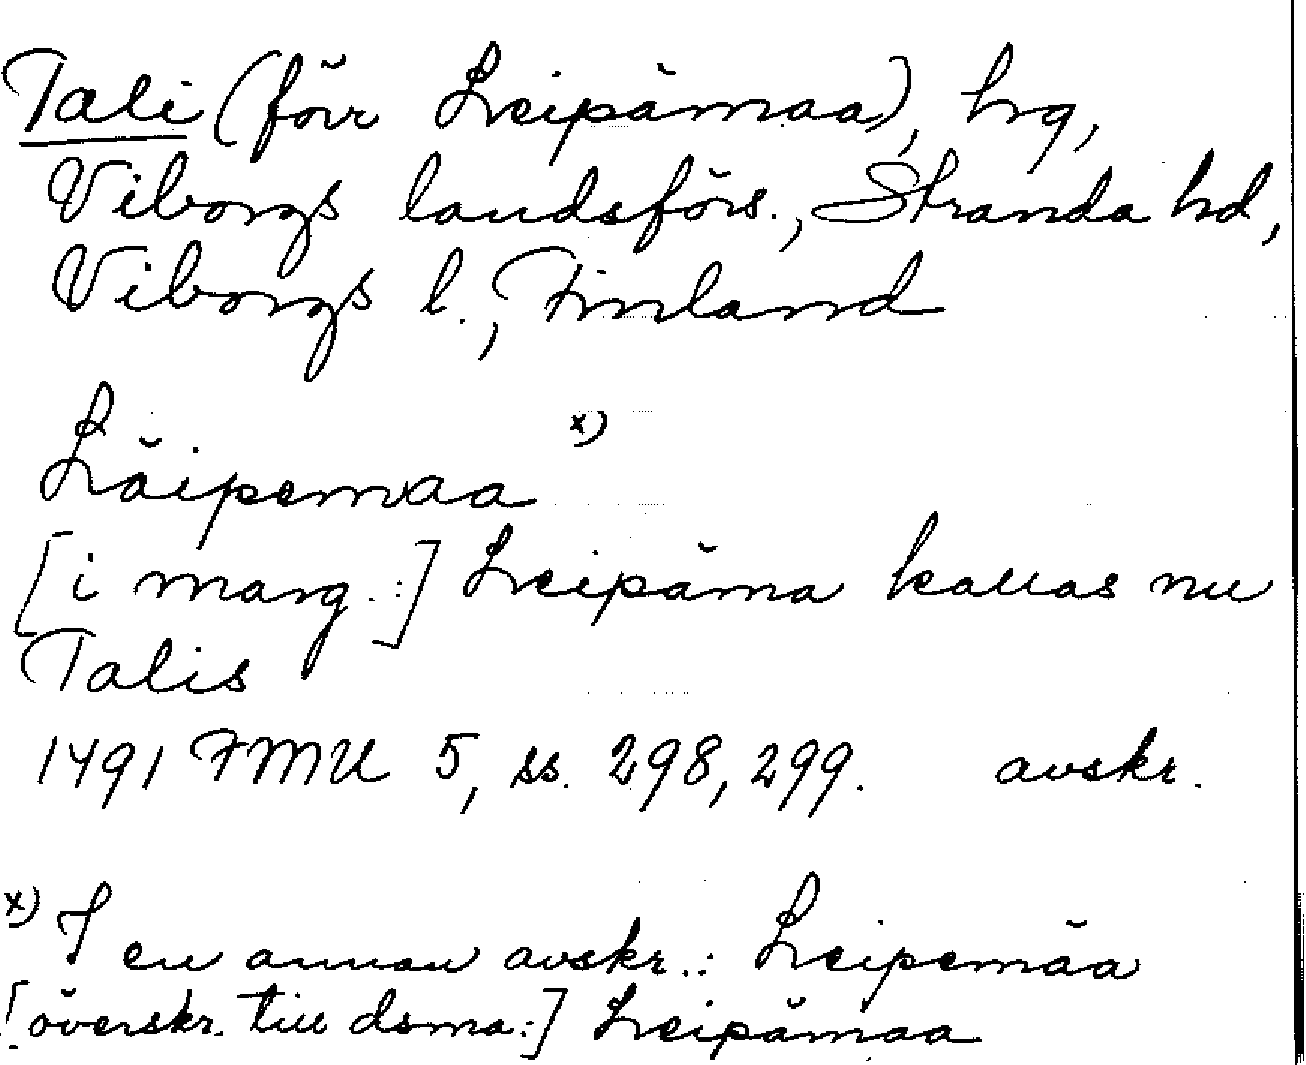 Tali (förr Leipämaa), hrg,
Viborgs landsförs., Stranda hd,
Viborgs l., Finland
Läipemaa x)
[i marg.:] Leipäma kallas nu
Talis
1491 FMU 5, ss. 298, 299. avskr.
x) I en annan avskr.: Leipemäa
[överskr. till dsma:] Leipämaa